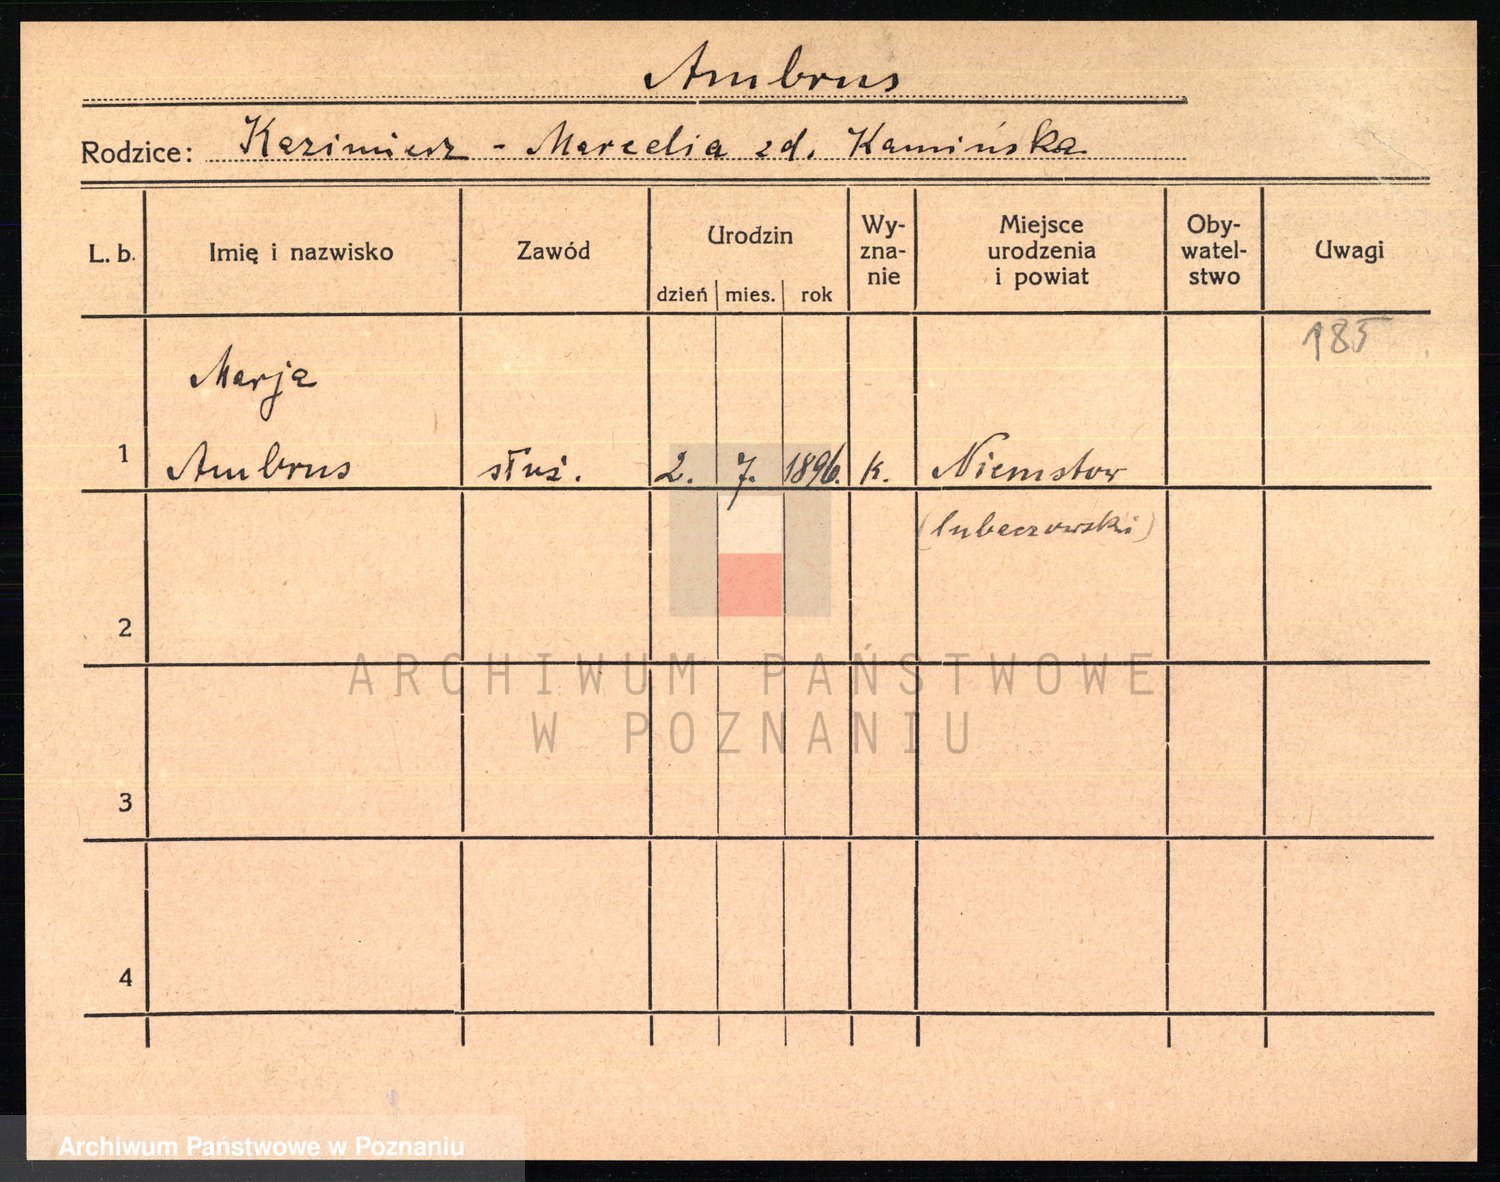 Ambrus
Rodzice: Kazimierz - Marcelia zd. Kamińska
L. b. Imię i nazwisko Zawód Urodzin Wy-zna-nie Miejsce urodzenia i powiat Oby-watel-stwo Uwagi
dzień mies. rok
185
Marja
1 Ambrus służ. 2. 7. 1896. k. Niemstow
(lubaczowski)
2
ARCHIWUM PAŃSTWOWE
W POZNANIU
3
4
Archiwum Państwowe w Poznaniu